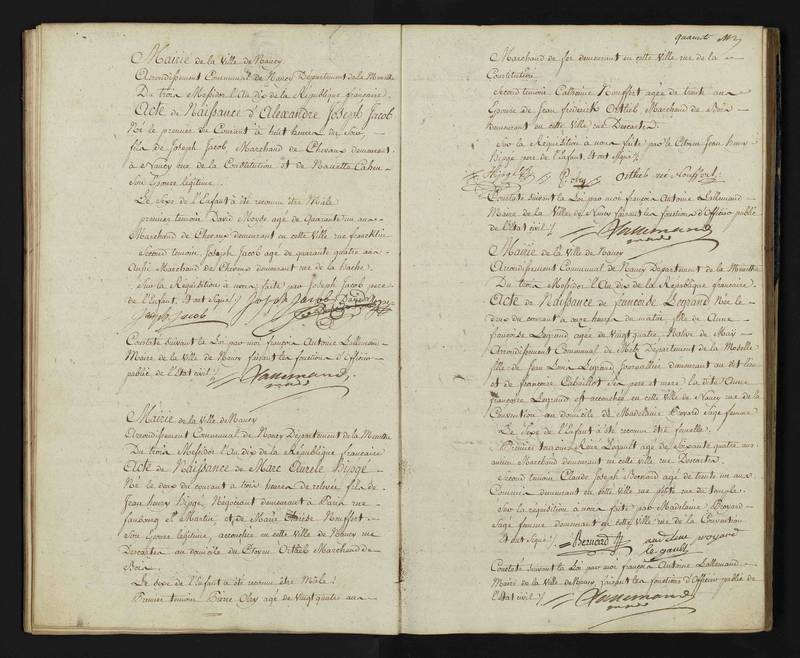 Mairie de la Ville de Nancy
Arrondissement Communal de Nancy Département de la Meurthe
Du trois Messidor l'An dix de la République française
Acte de Naissance d'Alexandre Joseph Jacob
Né le premier du Courant à huit heures du Soir,
fils de Joseph Jacob, Marchand de Chevaux demeurant
à Nancy rue de la Constitution et de Cahen
Son Epouse légitime.
Le Sexe de l'Enfant à été reconnu être Mâle
premier temoin David Moyse agé de Quarante un ans
Marchand de Chevaux demeurant en cette Ville rue
Second temoin Joseph Jacob agé de quarante quatre ans
Aussi Marchand de Chevaux demeurant rue de la hache.
Sur la Requisition à nous faite par Joseph Jacob pere
de l'Enfant. Et ont Signé Joseph Jacob David Moyse
Joseph Jacob
Constaté suivant la Loi par moi françois Antoine Lallemand
Maire de la Ville de Nancy faisant les fonctions d'Officier
public de l'Etat civil
Lallemand
Mairie de la Ville de Nancy
Arrondissement Communal de Nancy Département de la Meurthe
Du trois Messidor l'An dix de la République française
Acte de Naissance de Marc Aurele
Né le deux du courant à trois heures de relevée fils de
Jean henry Négociant demeurant à Paris rue
faubourg St Martin, et de Marie Nouffert
Son Epouse légitime, accouchée en cette Ville de Nancy rue
Descartes au domicile du Citoyen Ortlieb Marchand de
Bois.
Le Sexe de l'Enfant à été reconnu être Mâle
Premier temoin Pierre agé de Vingt quatre ans
Marchand de fer demeurant en cette Ville rue de la
Constitution
Second temoin Catherine Nouffert agée de trente ans
Epouse de Jean frederick Ortlieb Marchand de Bois
demeurant en cette Ville rue Descartes.
Sur la Requisition à nous faite par le Citoyen Jean henry
pere de l'Enfant. Et ont Signé
Ortlieb née Nouffert
Constaté suivant la Loi par moi françois Antoine Lallemand
Maire de la Ville de Nancy faisant les fonctions d'Officier public
de l'Etat civil
Lallemand
Mairie de la Ville de Nancy
Arrondissement Communal de Nancy Département de la Meurthe
Du trois Messidor l'An dix de la République française.
Acte de Naissance de françoise Legrand Née le
deux du courant à onze heures du matin, fille de Anne
françoise Legrand agée de Vingt quatre, Native de
Arrondissement Communal de Metz Département de la Moselle
fille de Jean Legrand Journallier demeurant au dit lieu
et de francoise ses pere et mere la dite Anne
françoise Legrand est accouchée en cette Ville de Nancy rue de la
Convention au domicile de Madelaine Sage femme
Le Sexe de l'Enfant à été reconnu être femelle.
Premier temoin agé de Soixante quatre ans
ancien Marchand demeurant en cette Ville rue Descartes.
Second temoin Claude Joseph Bernard agé de trente un ans
Commis demeurant en cette Ville petite rue du temple.
Sur la requisition à nous faite par Madelaine
Sage femme demeurant en cette Ville rue de la Convention
Et ont Signé Bernard
Constaté suivant la Loi par moi françois Antoine Lallemand
Maire de la Ville de Nancy, faisant les fonctions d'Officier public de
l'Etat civil
Lallemand